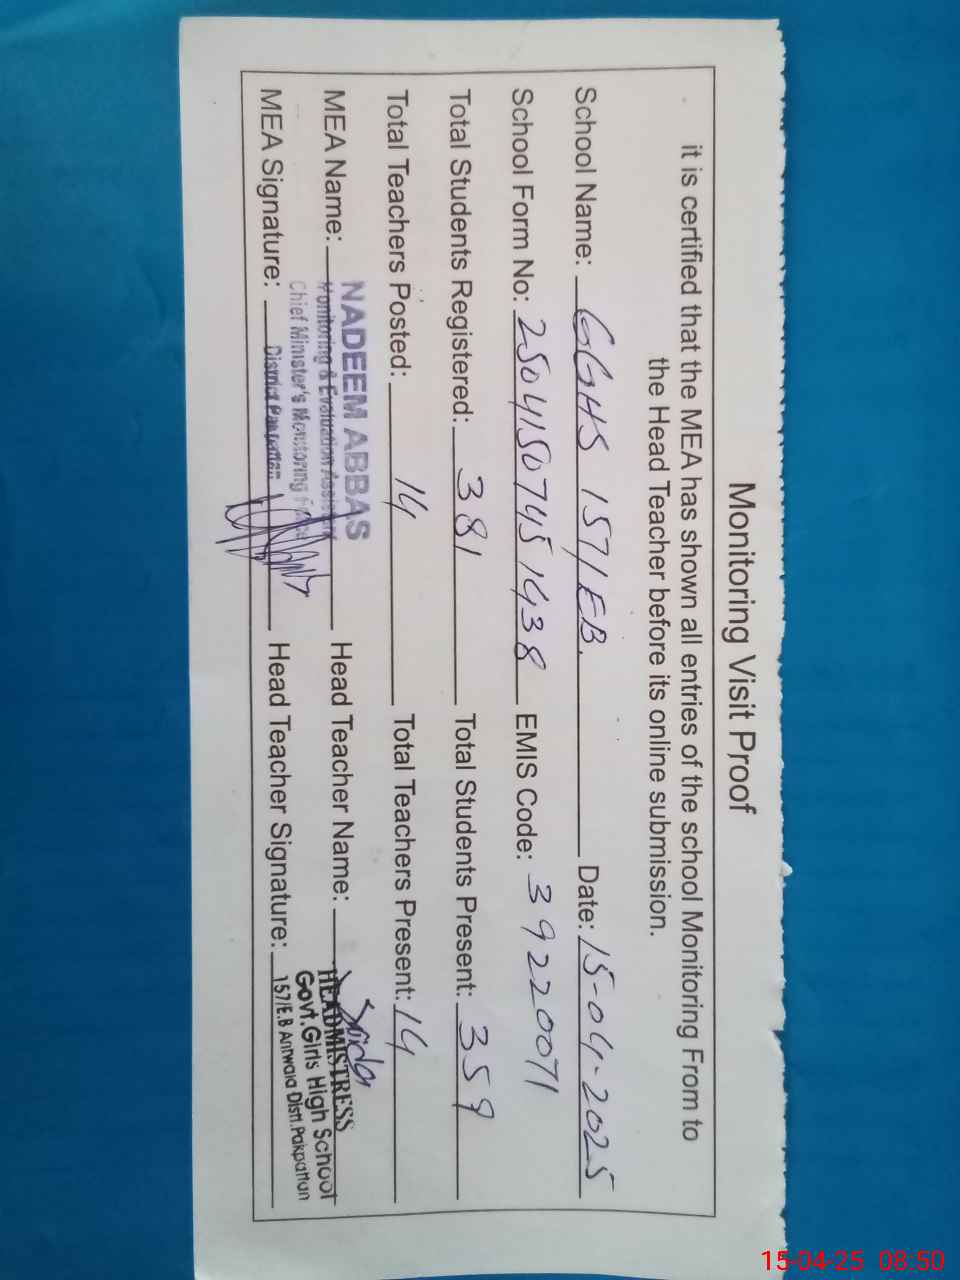 Monitoring Visit Proof
it is certified that the MEA has shown all entries of the school Monitoring From to
the Head Teacher before its online submission.
School Name: GGHS 157/EB. Date: 15-04-2025
School Form No: 25041507451438 EMIS Code: 39220071
Total Students Registered: 381 Total Students Present: 359
Total Teachers Posted: 14 Total Teachers Present: 14
MEA Name: NADEEM ABBAS Head Teacher Name:
Monitoring & Evaluation Assistant
Chief Minister's Monitoring Force
MEA Signature: District Pakpattan Head Teacher Signature:
HEADMISTRESS
Govt. Girls High School
157/E.B Antwala Distt. Pakpattan
15-04-25 08:50